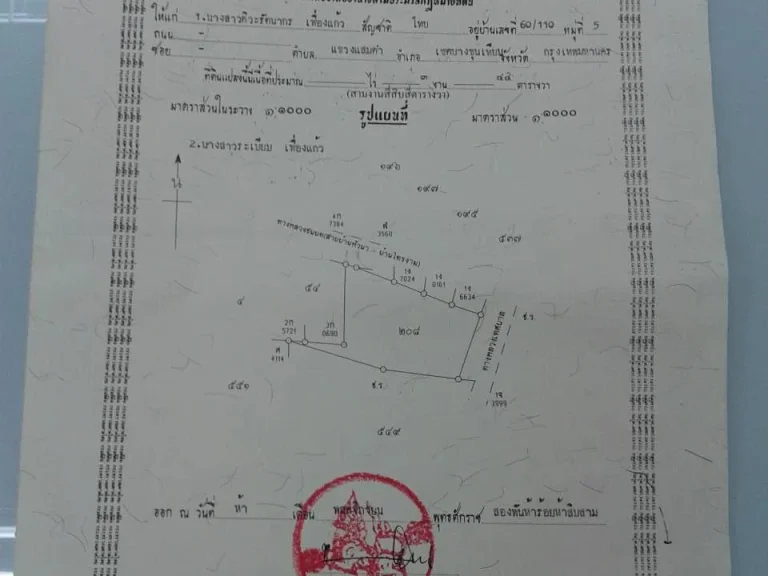 ให้แก่ ๑.นางสาวทิวะรัตนากร เฟื่องแก้ว สัญชาติ ไทย อยู่บ้านเลขที่ 60/110 หมู่ที่ 5
ถนน - ซอย - ตำบล แขวงแสมดำ อำเภอ เขตบางขุนเทียน จังหวัด กรุงเทพมหานคร
ที่ดินแปลงนี้มีเนื้อที่ประมาณ ไร่ ๓ งาน ๔๔ ตารางวา
(สามงานสี่สิบสี่ตารางวา)
มาตราส่วนในระวาง ๑:๑๐๐๐ รูปแผนที่ มาตราส่วน ๑:๑๐๐๐
2.นางสาวระเบียบ เฟื่องแก้ว
น
๑๙๖
๑๙๗
๑๙๕
๕๓๗
ทางหลวงชนบท(สายบ้านหัวนา - บ้านไทรงาม)
7384
3560
๕๔
1จ 7024
1จ
1จ 6634
๒๐๘
ทางหลวงเทศบาล
ช.ร.
๔
2ก 5721
2ก
4114
๕๕๑
ช.ร.
1จ
๕๔๙
ออก ณ วันที่ ห้า เดือน พุทธศักราช สองพันห้าร้อยห้าสิบสาม